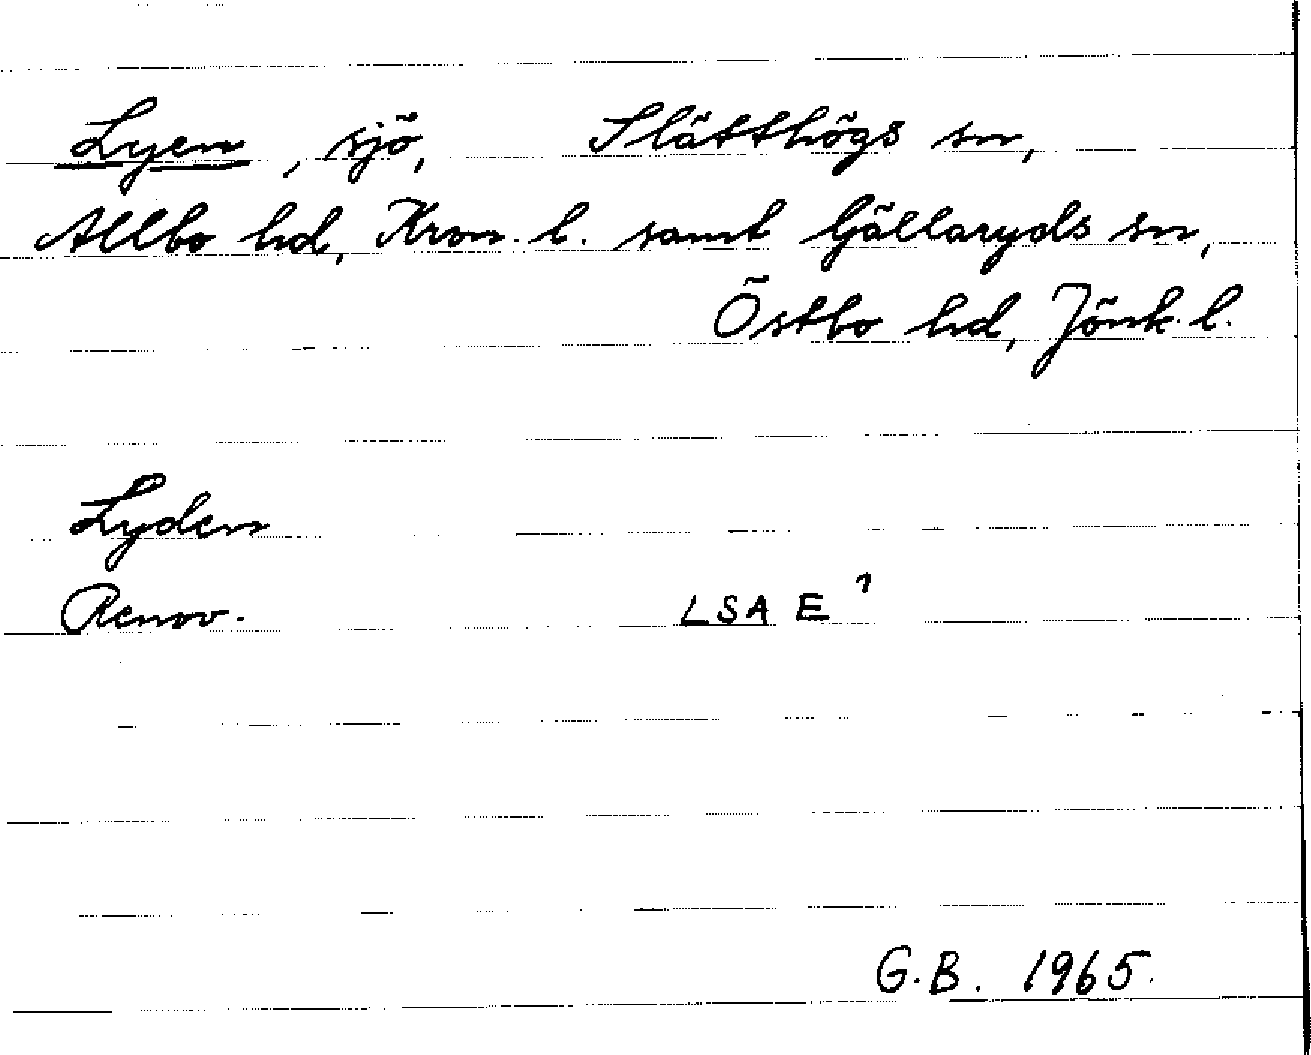 Lyen, sjö, Slätthögs sn,
Allbo hd, Kron. l. samt Gällaryds sn,
Östbo hd, Jönk. l.
Lyden
Renov. LSA E¹
G.B. 1965.